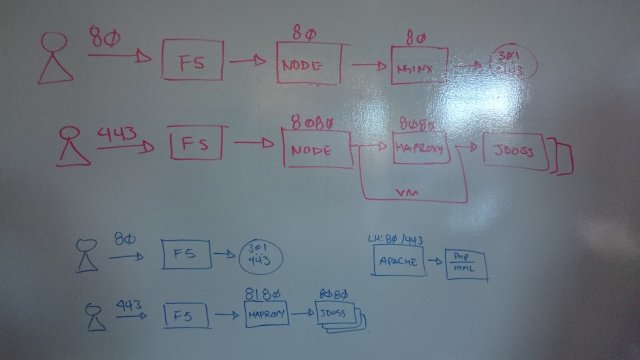 80
80
80
F5
NODE
NGINX
301
443
443
8080
8080
F5
NODE
HAPROXY
JBOSS
VM
80
F5
301
443
LH:80/443
APACHE
PHP
HTML
443
8180
8080
F5
HAPROXY
JBOSS